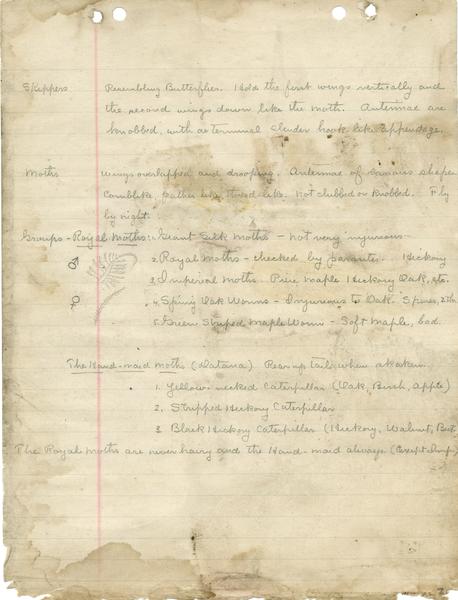 Skippers Resembling Butterflies. Hold the first wings vertically and
the second wings down like the moth. Antennae are
knobbed, with a terminal slender hook like appendage.
Moths wings overlapped and drooping. Antennae of various shapes
Comblike, feather like, thread like. not clubbed or knobbed. Fly
by night.
Groups - Royal Moths: 1. Giant Silk Moths - not very injurious -
♂ 2. Royal Moths - checked by parasites. Hickory
3. Imperial Moths. Pine Maple Hickory Oak, etc.
♀ 4. Spiny Oak Worms - Injurious to Oak.
5. Green Striped Maple Worm - Soft Maple, bad.
The Hand-maid moths (Datana) Rear up tail when shaken.
1. Yellow necked Caterpillar (Oak, Birch, Apple)
2. Stripped Hickory Caterpillar
3 Black Hickory Caterpillar (Hickory, Walnut, But
The Royal Moths are never hairy and the Hand-maid always (except